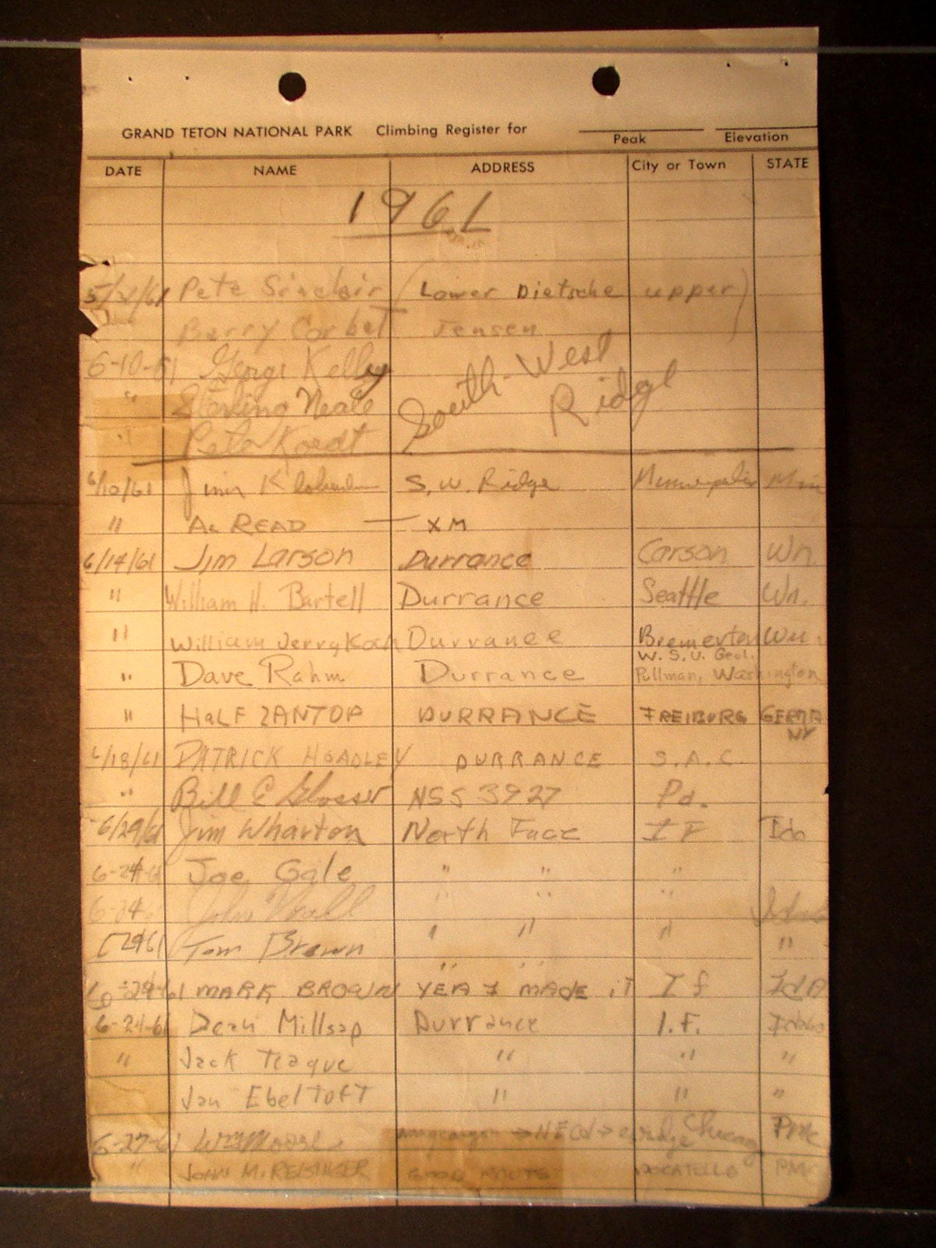 GRAND TETON NATIONAL PARK Climbing Register for
Peak Elevation
DATE NAME ADDRESS City or Town STATE
1961
5/31/61 Pete Sinclair (Lower Dietsche upper)
Barry Corbet Jensen
6-10-61 George Kelley South-West
" Sterling Neale Ridge
" Pete Koedt
6/10/61 Jim S.W. Ridge Minneapolis Min
" AL READ — XM
6/14/61 Jim Larson Durrance Carson Wn.
" William H. Bartell Durrance Seattle Wn.
" William Jerry Koch Durrance Bremerton Wn.
W.S.U. Geol.
" Dave Rahm Durrance Pullman, Washington
" HALF ZANTOP DURRANCE FREIBURG GERMANY
6/18/61 PATRICK HOADLEY DURRANCE S.A.C.
" Bill E NSS 3927 Pa.
6/29/61 Jim Wharton North Face I F Ida
6-24-61 Joe Gale " " "
6-24 John " " "
Tom Brown " " " "
" "
MARK BROWN YEA I MADE iT I f IdA
6-24-61 Dean Millsap Durrance I.F. Idaho
" Jack Teague " " "
Jan Ebeltoft " " "
6-27-61 Chicago PMC
" JOHN M. REISINGER GOOD POCATELLO PMC